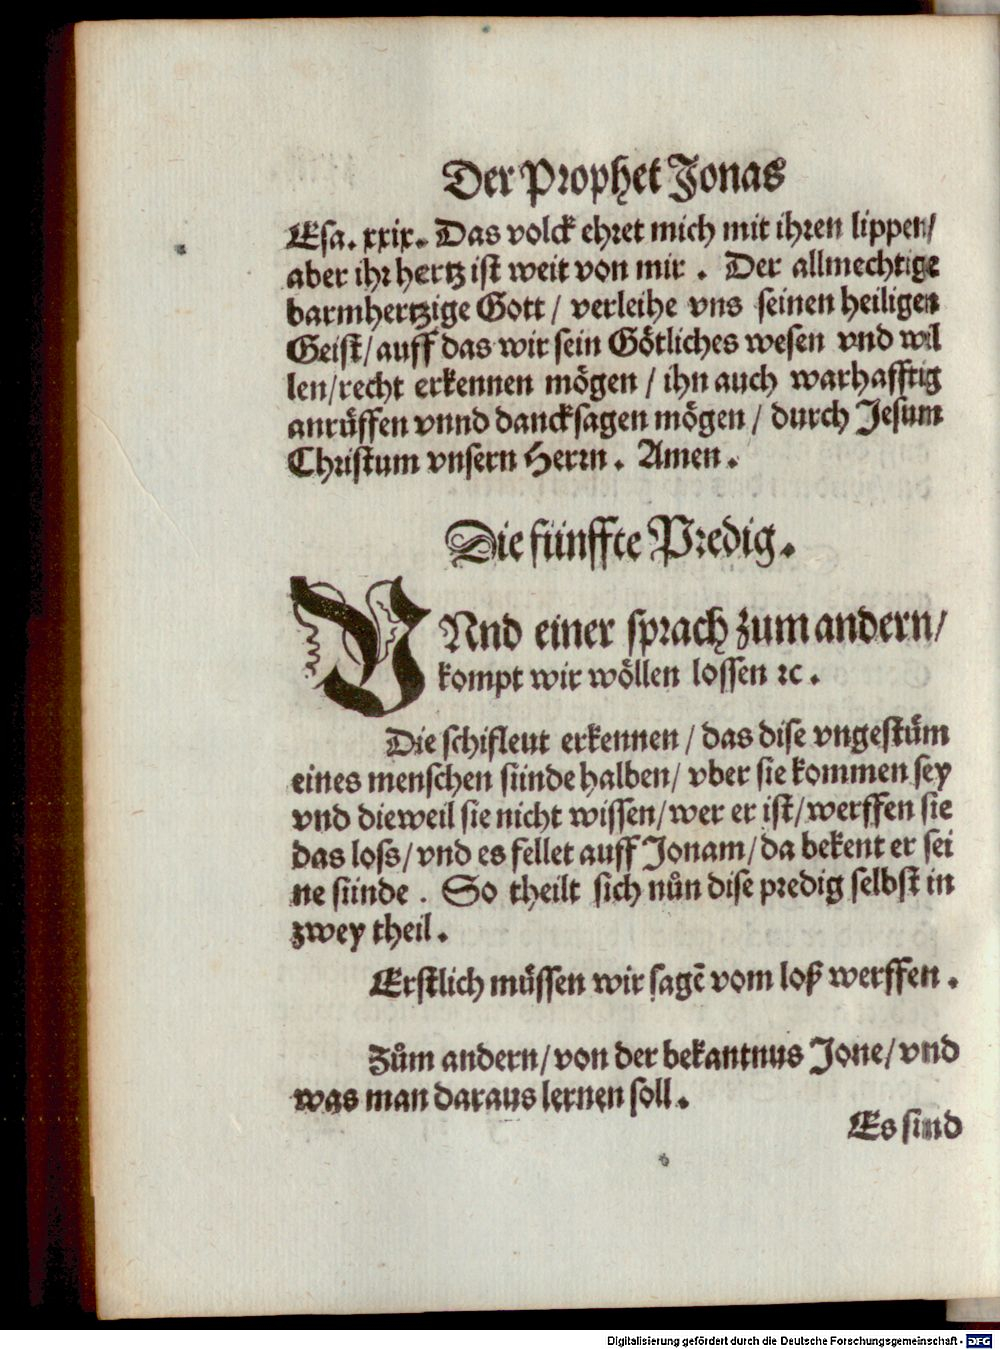 Der Prophet Jonas
Esa. xxix. Das volck ehret mich mit ihren lippen/
aber ihr hertz ist weit von mir . Der allmechtige
barmhertzige Gott / verleihe vns seinen heiligen
Geist/ auff das wir sein Götliches wesen vnd wil
len/recht erkennen mögen / ihn auch warhafftig
anrůffen vnnd dancksagen mögen / durch Jesum
Christum vnsern Herrn . Amen .
Die fünffte Predig.
VNnd einer sprach zum andern/
kompt wir wöllen lossen ꝛc .
Die schifleut erkennen / das dise vngestům
eines menschen sünde halben/ vber sie kommen sey
vnd dieweil sie nicht wissen/ wer er ist/ werffen sie
das loss/ vnd es fellet auff Jonam/ da bekent er sei
ne sünde . So theilt sich nůn dise predig selbst in
zwey theil .
Erstlich můssen wir sagē vom loß werffen .
Zům andern/ von der bekantnus Jone/ vnd
was man daraus lernen soll .
Es sind
Digitalisierung gefördert durch die Deutsche Forschungsgemeinschaft - DFG